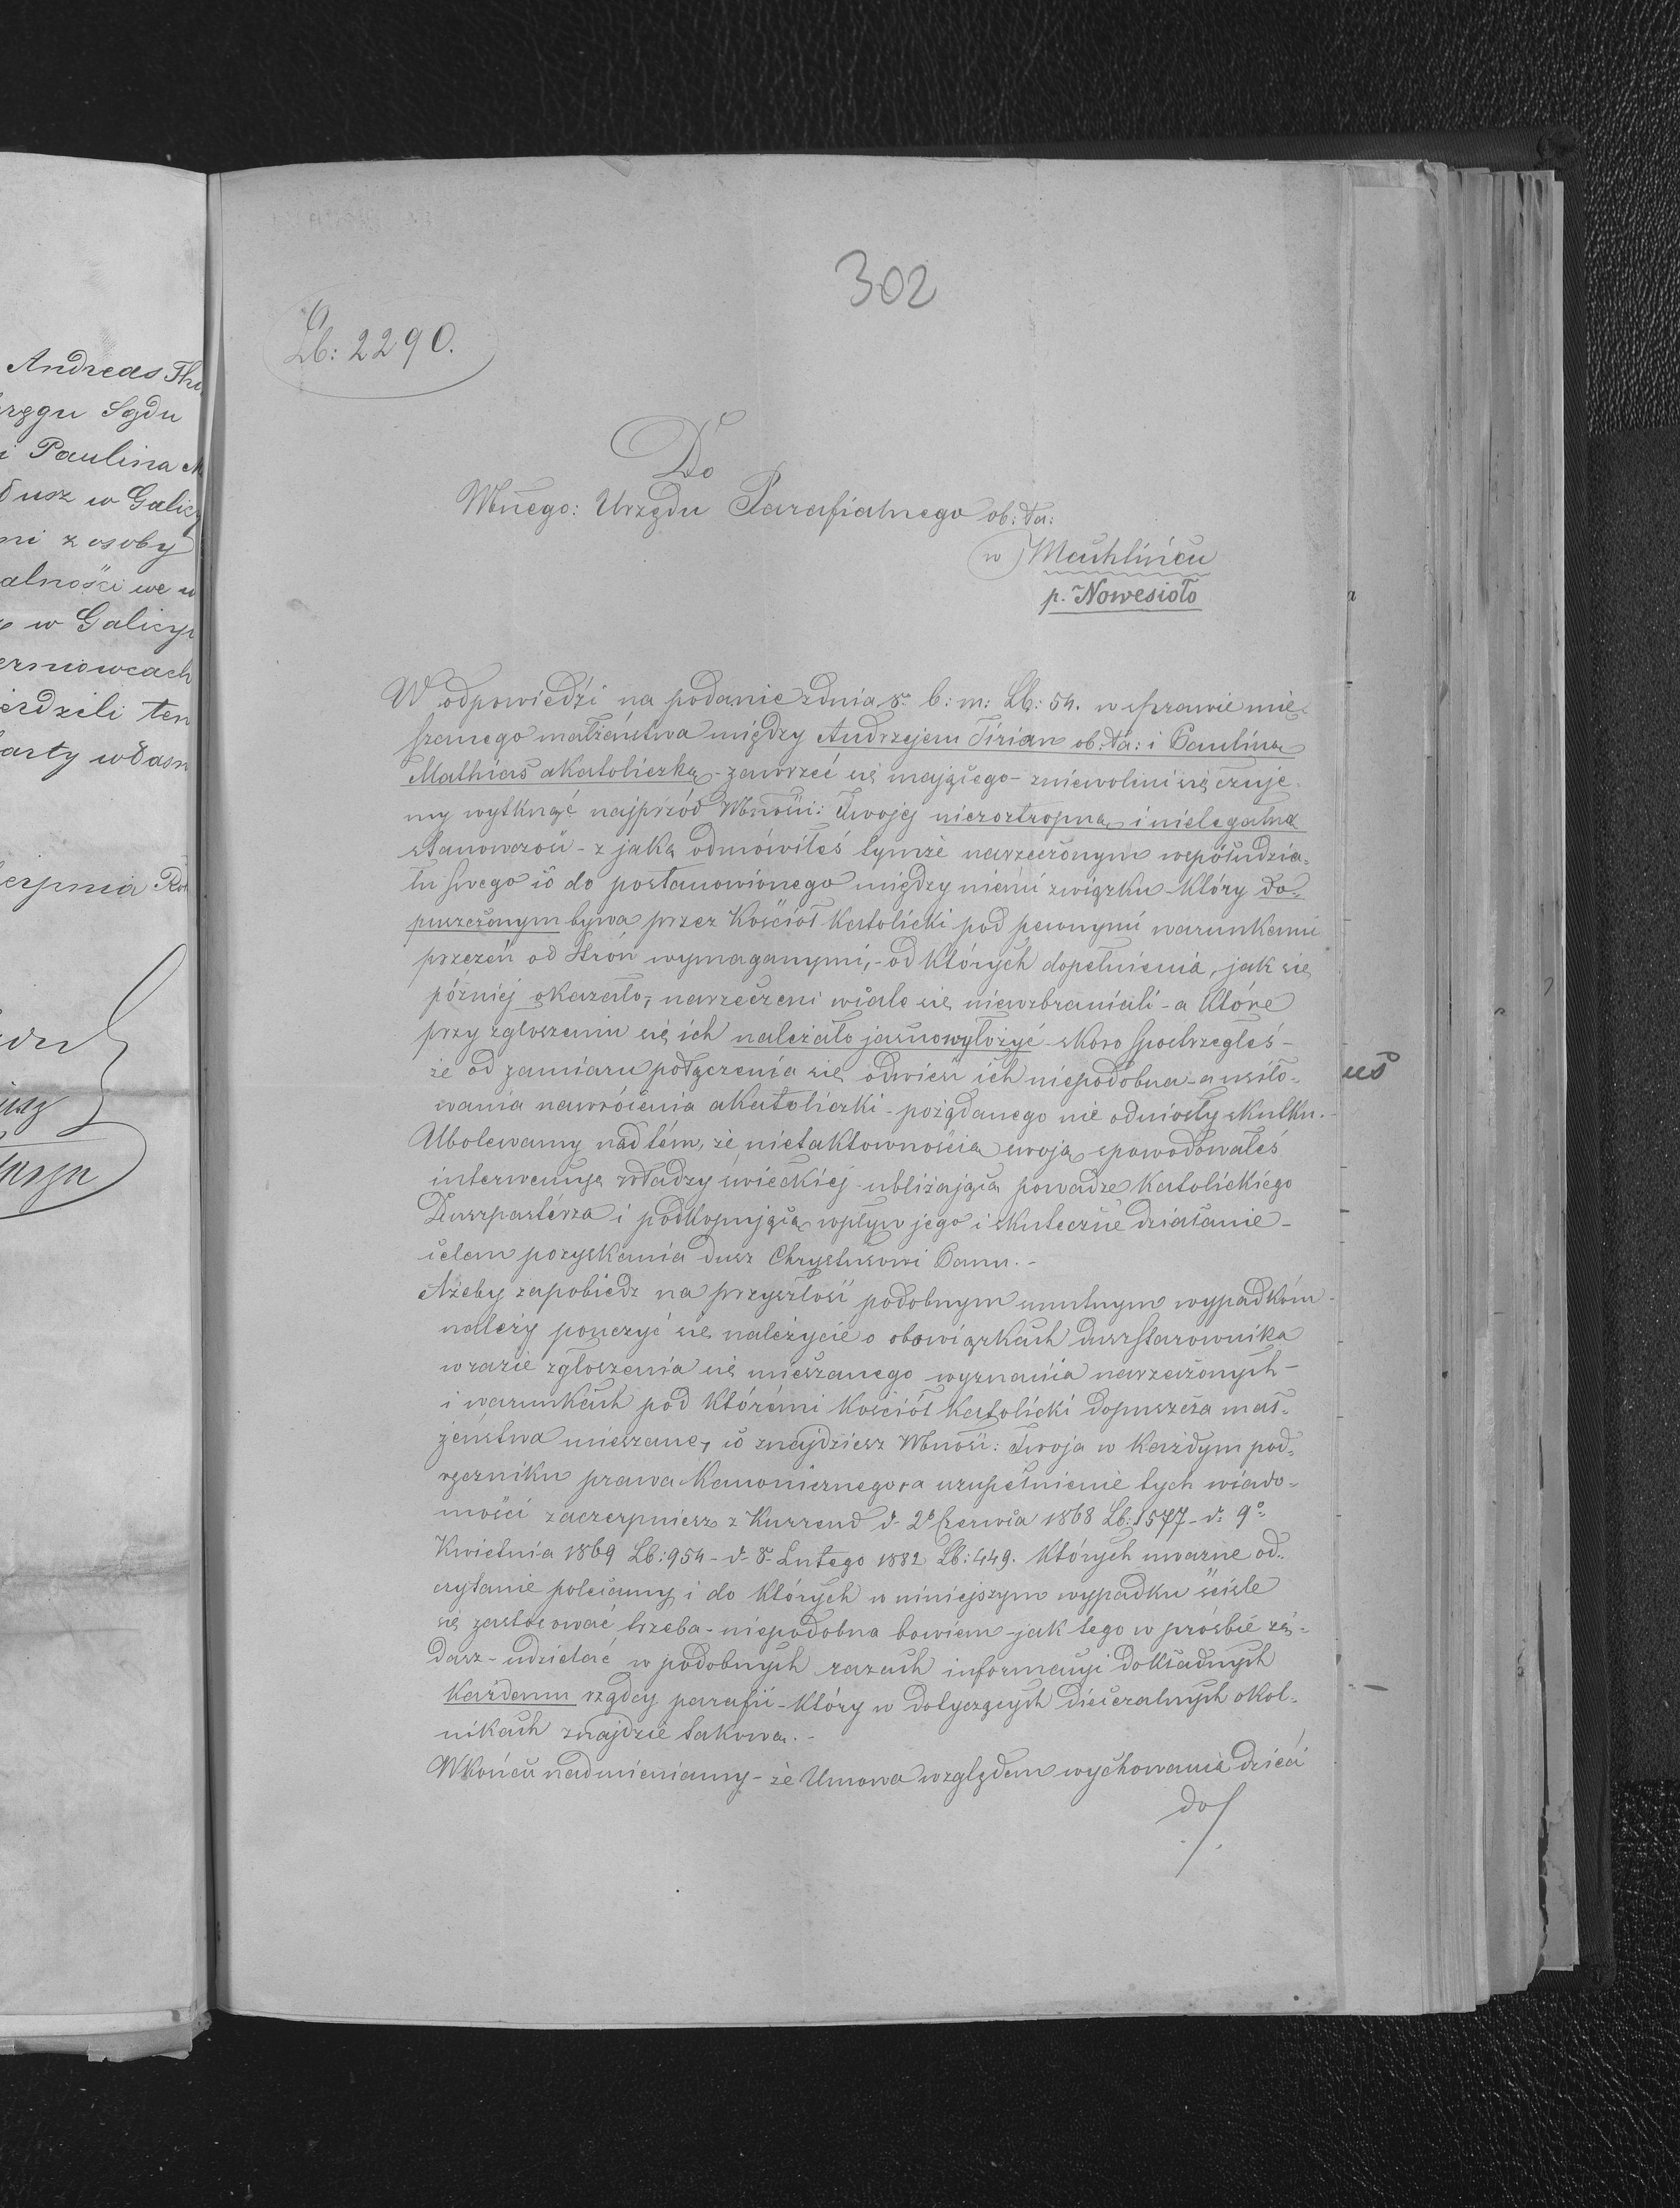 302
Lb: 2290.
Do
Wbnego: Urzędu Parafialnego ob: ła:
w Machlińcu
p. Nowesioło
W odpowiedzi na podanie z dnia 8- b: m: Lb: 54. w sprawie mię-
szanego małżeństwa między Andrzejem Tirian ob: ła: i Pauliną
Mathias akatoliczką - zawrzeć się mającego - zniewoleni się czuje
my wytknąć najprzód Wbności: Twojej nieroztropną i nielegalną
stanowczość - z jaką odmówiłeś tymże narzeczonym współudzia-
łu swego co do postanowionego między niemi związku - który do-
puszczonym bywa przez Kościół Katolicki pod pewnymi warunkami
przezeń od stron wymaganymi, - od których dopełnienia, jak się
później okazało, narzeczeni wcale się niewzbraniali - a które
przy zgłoszeniu się ich należało jasno wyłożyć - skoro spostrzegłeś -
że od zamiaru połączenia się odwieść ich niepodobna - a usiło-
wania nawrócenia akatoliczki - pożądanego nie odniosły skutku. -
Ubolewamy nad tém, że nietaktownością swoją spowodowałeś
interwencyę władzy świeckiej - ubliżającą powadze Katolickiego
Duszpasterza i podkopującą wpływ jego i skuteczne działanie -
celem pozyskania dusz Chrystusowi Panu. -
Ażeby zapobiedz na przyszłość podobnym smutnym wypadkóm -
należy pouczyć się należycie o obowiązkach duszstarownika
w razie zgłoszenia się mieszanego wyznania narzeczonych -
i warunkach pod którémi Kościół Katolicki dopuszcza mał-
żeństwa mieszane, co znajdziesz Wbność: Twoja w każdym pod-
ręczniku prawa Kanonicznego, a uzupełnienie tych wiado-
mości zaczerpniesz z Kurrend d- 2º Czerwca 1868 Lb: 1577 - d: 9º
Kwietnia 1869 Lb: 954 - d- 8- Lutego 1882 Lb: 449. których uważne od-
czytanie polecamy i do których w niniejszym wypadku ściśle
się zastosować trzeba - niepodobna bowiem - jak tego w prośbie żą-
dasz - udzielać w podobnych razach informacyi dokładnych
każdemu rządcy parafii - który w dotyczących diecezalnych okol-
nikach znajdzie takową. -
W końcu nadmieniamy - że Umowa względem wychowania dzieci
do/.